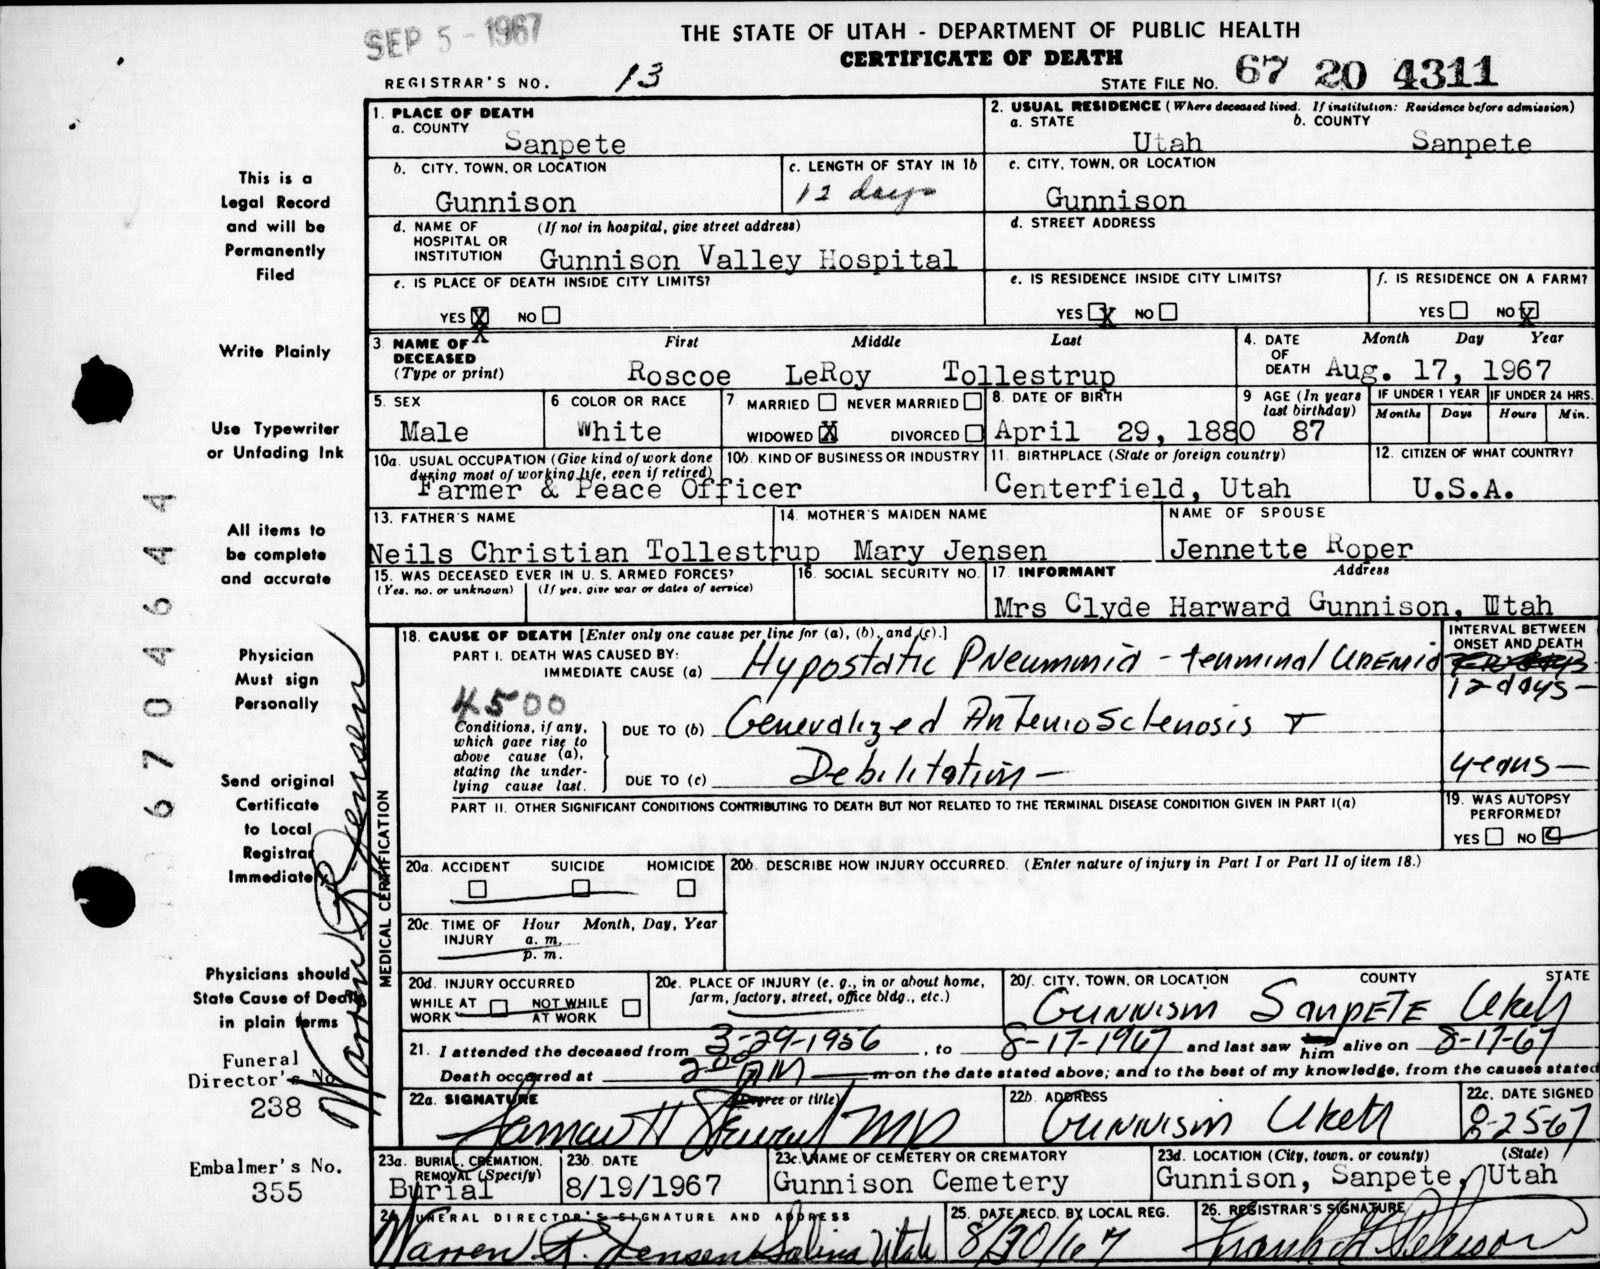 SEP 5 - 1967
THE STATE OF UTAH - DEPARTMENT OF PUBLIC HEALTH
CERTIFICATE OF DEATH
REGISTRAR'S NO. 13
STATE FILE NO. 67 20 4311
This is a
Legal Record
and will be
Permanently
Filed
Write Plainly
Use Typewriter
or Unfading Ink
All items to
be complete
and accurate
Physician
Must sign
Personally
Send original
Certificate
to Local
Registrar
Immediately
Physicians should
State Cause of Death
in plain terms
Funeral
Director's No.
238
Embalmer's No.
355
6704644
Warren R Jensen
1. PLACE OF DEATH
a. COUNTY
Sanpete
2. USUAL RESIDENCE (Where deceased lived. If institution: Residence before admission)
a. STATE b. COUNTY
Utah Sanpete
b. CITY, TOWN, OR LOCATION
Gunnison
c. LENGTH OF STAY IN 1b
12 days
c. CITY, TOWN, OR LOCATION
Gunnison
d. NAME OF (If not in hospital, give street address)
HOSPITAL OR
INSTITUTION Gunnison Valley Hospital
d. STREET ADDRESS
e. IS PLACE OF DEATH INSIDE CITY LIMITS?
YES X NO
e. IS RESIDENCE INSIDE CITY LIMITS?
YES X NO
f. IS RESIDENCE ON A FARM?
YES NO X
3. NAME OF First Middle Last
DECEASED
(Type or print) Roscoe LeRoy Tollestrup
4. DATE Month Day Year
OF
DEATH Aug. 17, 1967
5. SEX
Male
6 COLOR OR RACE
White
7 MARRIED NEVER MARRIED
WIDOWED X DIVORCED
8. DATE OF BIRTH
April 29, 1880
9 AGE (In years
last birthday)
87
IF UNDER 1 YEAR IF UNDER 24 HRS.
Months Days Hours Min.
10a. USUAL OCCUPATION (Give kind of work done
during most of working life, even if retired)
10b. KIND OF BUSINESS OR INDUSTRY
Farmer & Peace Officer
11. BIRTHPLACE (State or foreign country)
Centerfield, Utah
12. CITIZEN OF WHAT COUNTRY?
U.S.A.
13. FATHER'S NAME
Neils Christian Tollestrup
14. MOTHER'S MAIDEN NAME
Mary Jensen
NAME OF SPOUSE
Jennette Roper
15. WAS DECEASED EVER IN U. S. ARMED FORCES?
(Yes, no, or unknown) (If yes, give war or dates of service)
16. SOCIAL SECURITY NO.
17 INFORMANT Address
Mrs Clyde Harward Gunnison, Utah
MEDICAL CERTIFICATION
18. CAUSE OF DEATH [Enter only one cause per line for (a), (b), and (c).]
PART I. DEATH WAS CAUSED BY:
IMMEDIATE CAUSE (a) Hypostatic Pneumonia - terminal Uremia
INTERVAL BETWEEN
ONSET AND DEATH
12 days -
4500
Conditions, if any,
which gave rise to
above cause (a),
stating the under-
lying cause last.
DUE TO (b) Generalized Arteriosclerosis +
DUE TO (c) Debilitation -
years -
PART II. OTHER SIGNIFICANT CONDITIONS CONTRIBUTING TO DEATH BUT NOT RELATED TO THE TERMINAL DISEASE CONDITION GIVEN IN PART I(a)
19. WAS AUTOPSY
PERFORMED?
YES NO
20a. ACCIDENT SUICIDE HOMICIDE
20b. DESCRIBE HOW INJURY OCCURRED. (Enter nature of injury in Part I or Part II of item 18.)
20c. TIME OF Hour Month, Day, Year
INJURY a. m.
p. m.
20d. INJURY OCCURRED
WHILE AT NOT WHILE
WORK AT WORK
20e. PLACE OF INJURY (e. g., in or about home,
farm, factory, street, office bldg., etc.)
20f. CITY, TOWN, OR LOCATION COUNTY STATE
Gunnison Sanpete Utah
21. I attended the deceased from 3-29-1956, to 8-17-1967 and last saw him alive on 8-17-67
Death occurred at 2 00 AM m on the date stated above; and to the best of my knowledge, from the causes stated
22a. SIGNATURE (Degree or title)
Lamar H Stewart MD
22b. ADDRESS
Gunnison Utah
22c. DATE SIGNED
8-25-67
23a. BURIAL, CREMATION,
REMOVAL (Specify)
Burial
23b. DATE
8/19/1967
23c. NAME OF CEMETERY OR CREMATORY
Gunnison Cemetery
23d. LOCATION (City, town, or county) (State)
Gunnison, Sanpete, Utah
24. FUNERAL DIRECTOR'S SIGNATURE AND ADDRESS
Warren R. Jensen Salina Utah
25. DATE RECD. BY LOCAL REG.
8/30/67
26. REGISTRAR'S SIGNATURE